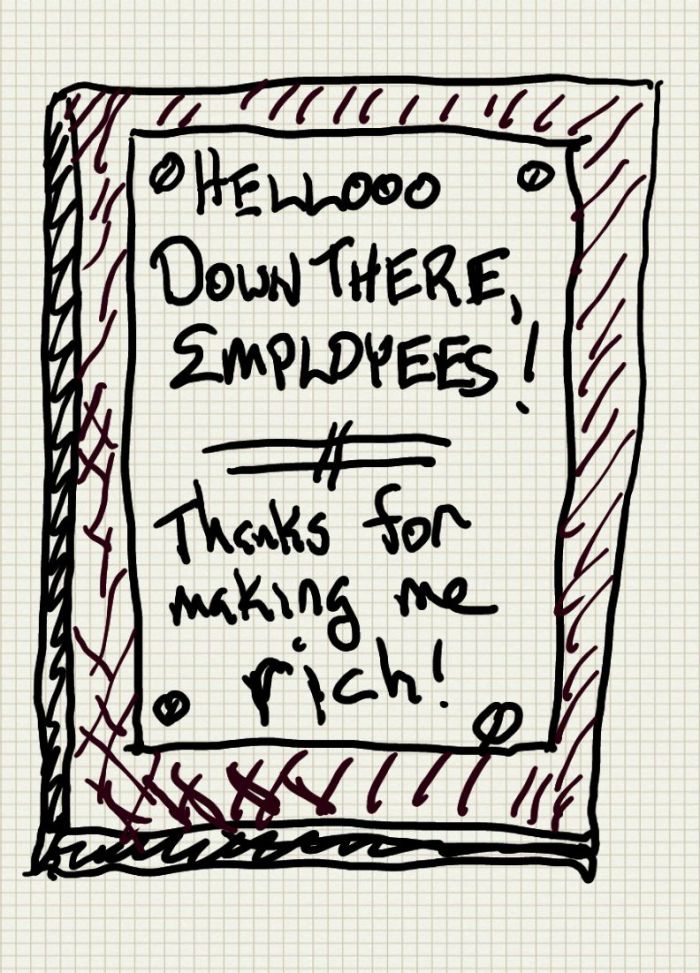 HELLOOO
DOWN THERE,
EMPLOYEES!
Thanks for
making me
rich!